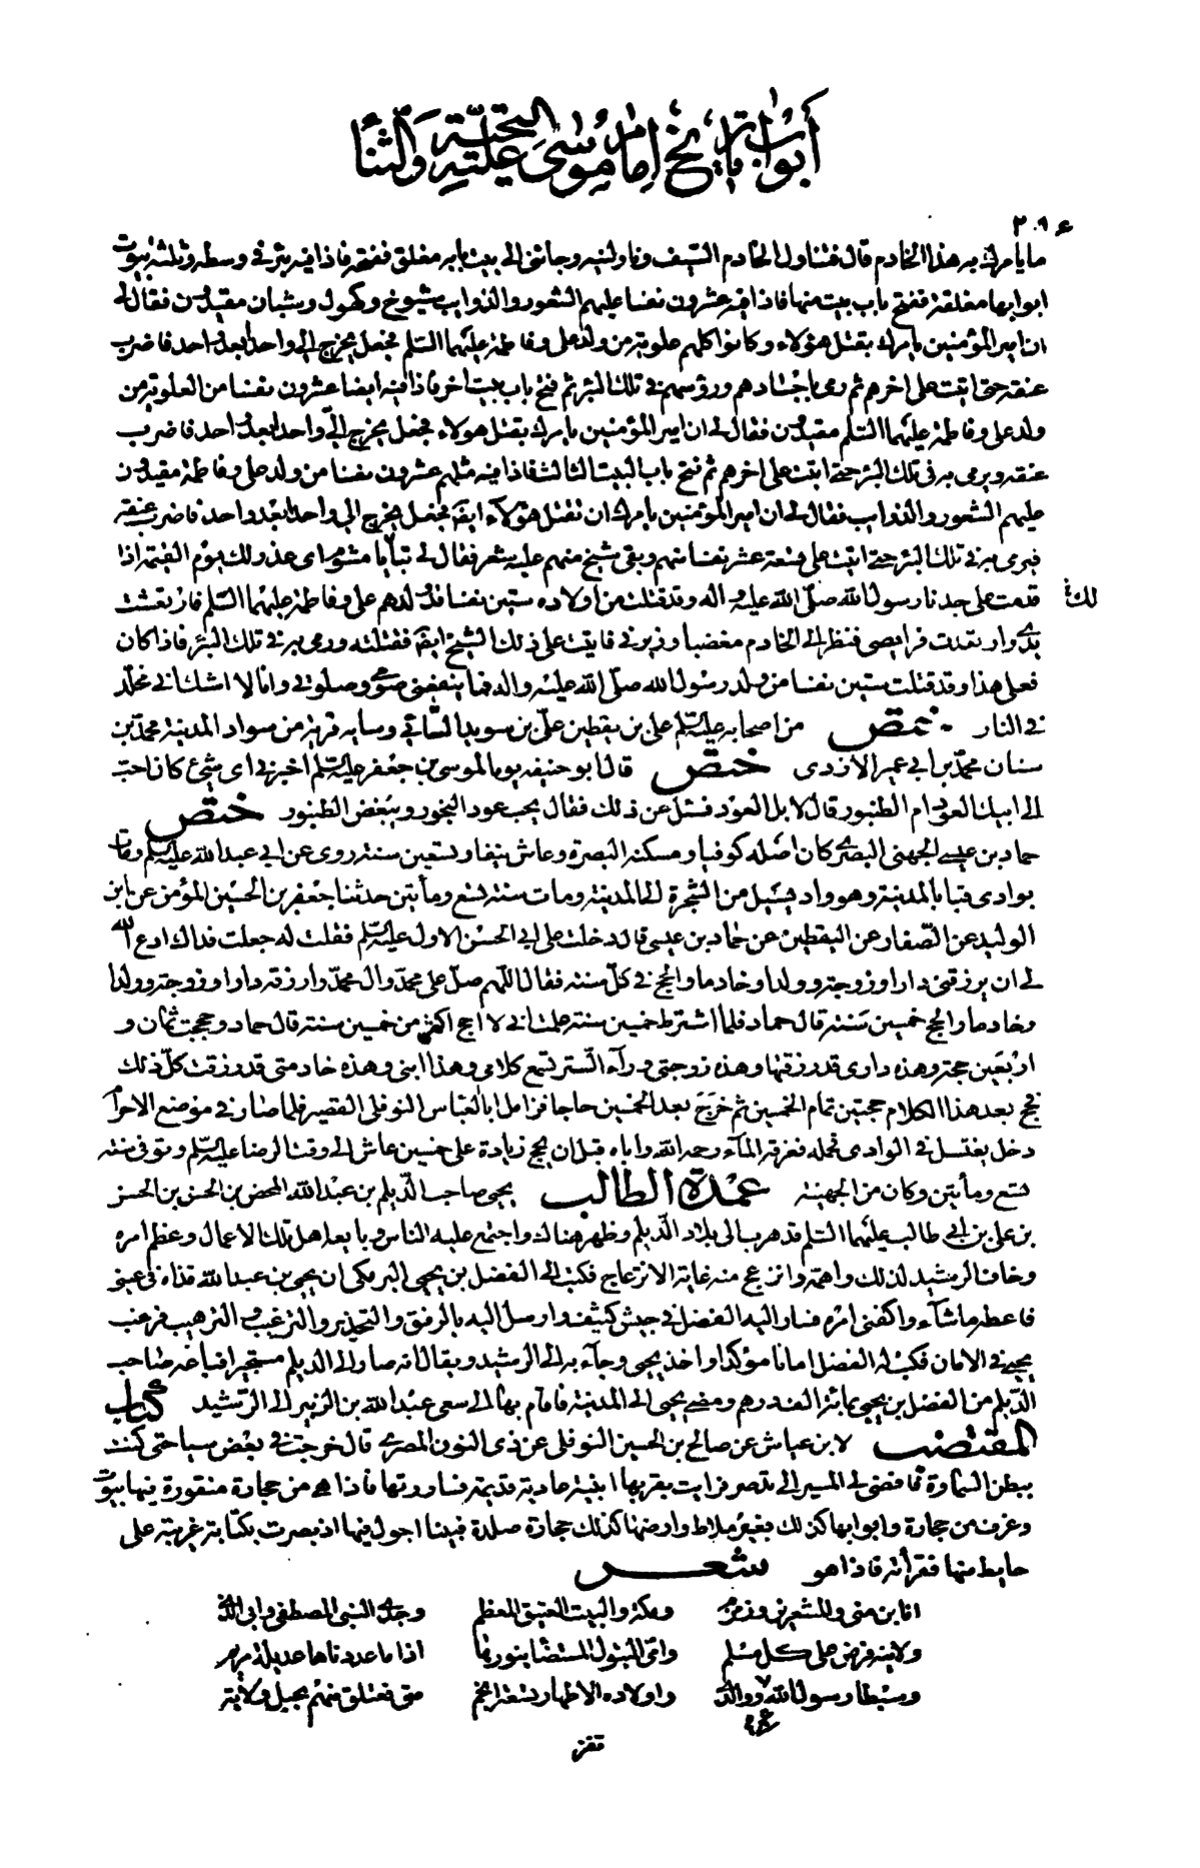 أبواب تاريخ إمام موسى عليه التحية والثناء
٢٠٦
ما يامرك به هذا الخادم قال فتناول الخادم السيف وناولنيه وجائنى الى بيت بابه مغلق ففتحه فاذا فيه بئر فى وسطه وثلثة بيوت
ابوابها مغلقة ففتح باب بيت منها فاذا فيه عشرون نفسا عليهم الشعور والذوايب شيوخ وكهول وشبان مقيدون فقال لى
ان امير المؤمنين يامرك بقتل هؤلاء وكانوا كلهم علوية من ولد على وفاطمة عليهما السلم فجعل يخرج الى واحدا بعد واحد فاضرب
عنقه حتى اتيت على اخرهم ثم رمى باجسادهم ورؤسهم فى تلك البئر ثم فتح باب بيت اخر فاذا فيه ايضا عشرون نفسا من العلوية من
ولد على وفاطمة عليهما السلم مقيدون فقال لى ان امير المؤمنين يامرك بقتل هولاء فجعل يخرج الىّ واحدا بعد واحد فاضرب
عنقه ويرمى به فى تلك البئر حتى اتيت على اخرهم ثم فتح باب البيت الثالث فاذا فيه مثلهم عشرون نفسا من ولد على وفاطمة مقيدون
عليهم الشعور والذوايب فقال لى ان امير المؤمنين يامرك ان تقتل هؤلاء ايضا فجعل يخرج الى واحدا بعد واحد فاضرب عنقه
فيرمى به فى تلك البئر حتى اتيت على تسعة عشر نفسا منهم وبقى شيخ منهم عليه شعر فقال لى تبا يا مشوم اى عذر لك يوم القيمة اذا
قدمت على جدنا رسول الله صلى الله عليه واله وقد قتلت من اولاده ستين نفسا قد ولدهم على وفاطمة عليهما السلم فارتعشت لك
يدى وارتعدت فرايصى فنظر الى الخادم مغضبا وزبرنى فاتيت على ذلك الشيخ ايضا فقتلته ورمى به فى تلك البئر فاذا كان
فعلى هذا وقد قتلت ستين نفسا من ولد رسول الله صلى الله عليه واله فما ينفعنى صومى وصلوتى وانا لا اشك انى مخلد
فى النار ختص من اصحابه عليه السلم على بن يقطين على بن سويد السائى وسايه قرية من سواد المدينة محمد بن
سنان محمد بن ابى عمير الازدى ختص قال ابو حنيفه يوما لموسى بن جعفر عليه السلم اخبرنى اى شىء كان احب
الى ابيك العود ام الطنبور قال لا بل العود فسئل عن ذلك فقال يحب عود البخور ويبغض الطنبور ختص
حماد بن عيسى الجهنى البصرى كان اصله كوفيا ومسكنه البصرة وعاش نيفا وتسعين سنة روى عن ابى عبد الله عليه السلم ومات
بوادى قبا بالمدينة وهو واد يسيل من الشجرة الى المدينة ومات سنة تسع ومأتين حدثنا جعفر بن الحسين المؤمن عن ابن
الوليد عن الصفار عن اليقطين عن حماد بن عيسى قال دخلت على ابى الحسن الاول عليه السلم فقلت له جعلت فداك ادع الله
لى ان يرزقنى دارا وزوجة وولدا وخادما والحج فى كل سنة فقال اللهم صل على محمد وال محمد وارزقه دارا وزوجة وولدا
وخادما والحج خمسين سنة قال حماد فلما اشترط خمسين سنة علمت انى لا احج اكثر من خمسين سنة قال حماد وحججت ثمان و
اربعين حجة وهذه دارى قد رزقتها وهذه زوجتى وراء الستر تسمع كلامى وهذا ابنى وهذه خادمتى قد رزقت كل ذلك
فحج بعد هذا الكلام حجتين تمام الخمسين ثم خرج بعد الخمسين حاجا فزامل ابا العباس النوفلى القصير فلما صار فى موضع الاحرام
دخل يغتسل فى الوادى فحمله فغرقه الماء رحمه الله واباه قبل ان يحج زيادة على خمسين عاش الى وقت الرضا عليه السلم وتوفى سنة
تسع ومأتين وكان من الجهينة عمدة الطالب يحيى صاحب الديلم بن عبد الله المحض بن الحسن بن الحسن
بن على بن ابى طالب عليهما السلم قد هرب الى بلاد الديلم وظهر هناك واجتمع عليه الناس وبايعه اهل تلك الاعمال وعظم امره
وخاف الرشيد لذلك واهمه وانزعج منه غاية الانزعاج فكتب الى الفضل بن يحيى البرمكى ان يحيى بن عبد الله قذاة فى عينى
فاعطه ما شآء واكفنى امره فسار اليه الفضل فى جيش كثيف وارسل اليه بالرفق والتحذير والترغيب والترهيب فرغب
يحيى فى الامان فكتب له الفضل امانا مؤكدا واخذ يحيى وجآء به الى الرشيد ويقال انه صار الى الديلم مستجيرا فباعه صاحب
الديلم من الفضل بن يحيى بمائة الف درهم ومضى يحيى الى المدينة فاقام بها الى سعى عبد الله بن الزبير الى الرشيد كتاب
المقتضب لابن عياش عن صالح بن الحسين النوفلى عن ذى النون المصرى قال خرجت فى بعض سياحتى كنت
ببطن السماوة فافضى لى المسير الى تدمر فرايت بقربها ابنية عادية قديمة فساورتها فاذا هى من حجارة منقورة فيها بيوت
وغرف من حجارة وابوابها كذلك بغير ملاط وارضها كذلك حجارة صلدة فبينا اجول فيها اذ بصرت بكتابة غريبة على
حايط منها فقرأته فاذا هو شعـــر
انا ابن منى والمشعرين وزمزم ومكة والبيت العتيق المعظم وجدى النبى المصطفى وابى الذى
ولايته فرض على كل مسلم وامى البتول المستضا بنورها اذا ما عددناها عديلة مريم
وسبطا رسول الله عمى ووالدى واولاده الاطهار تسعة انجم متى تعتلق منهم بحبل ولاية
قفز